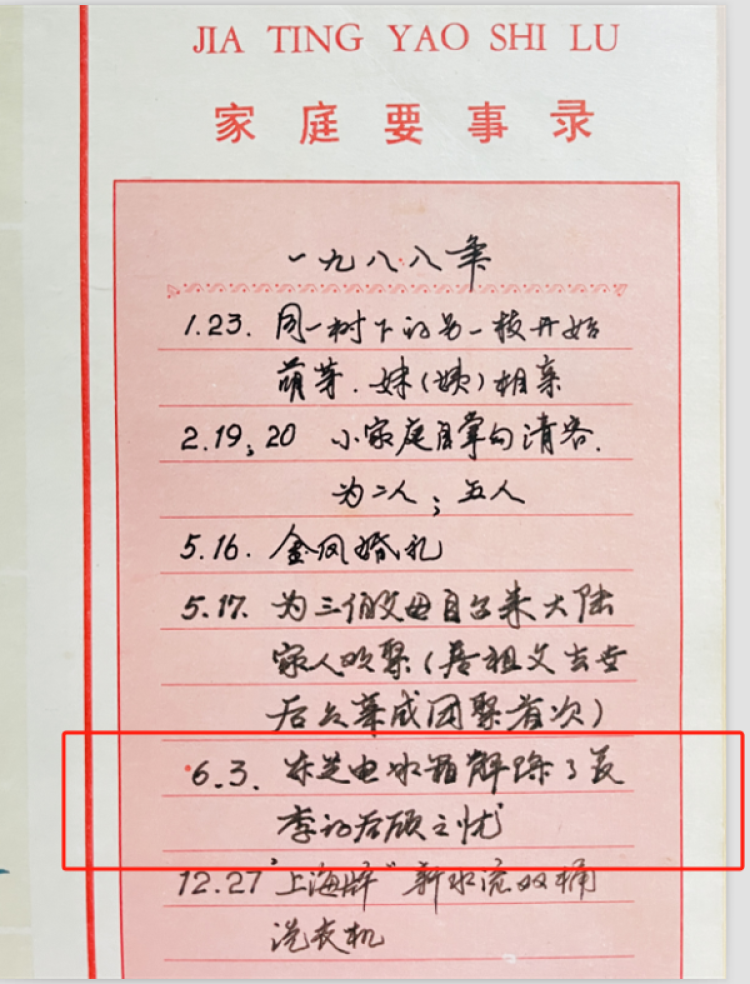 JIA TING YAO SHI LU
家庭要事录
一九八八年
1.23. 同一树下的另一枝开始
萌芽. 妹(姨)相亲
2.19; 20 小家庭自掌勺请客.
为二人; 五人
5.16. 金凤婚礼
5.17. 为三伯父母自台来大陆
家人欢聚(居祖父去世
后众辈成团聚首次)
6.3. 东芝电冰箱解除了夏
季的后顾之忧
12.27 "上海牌"新水流双桶
洗衣机